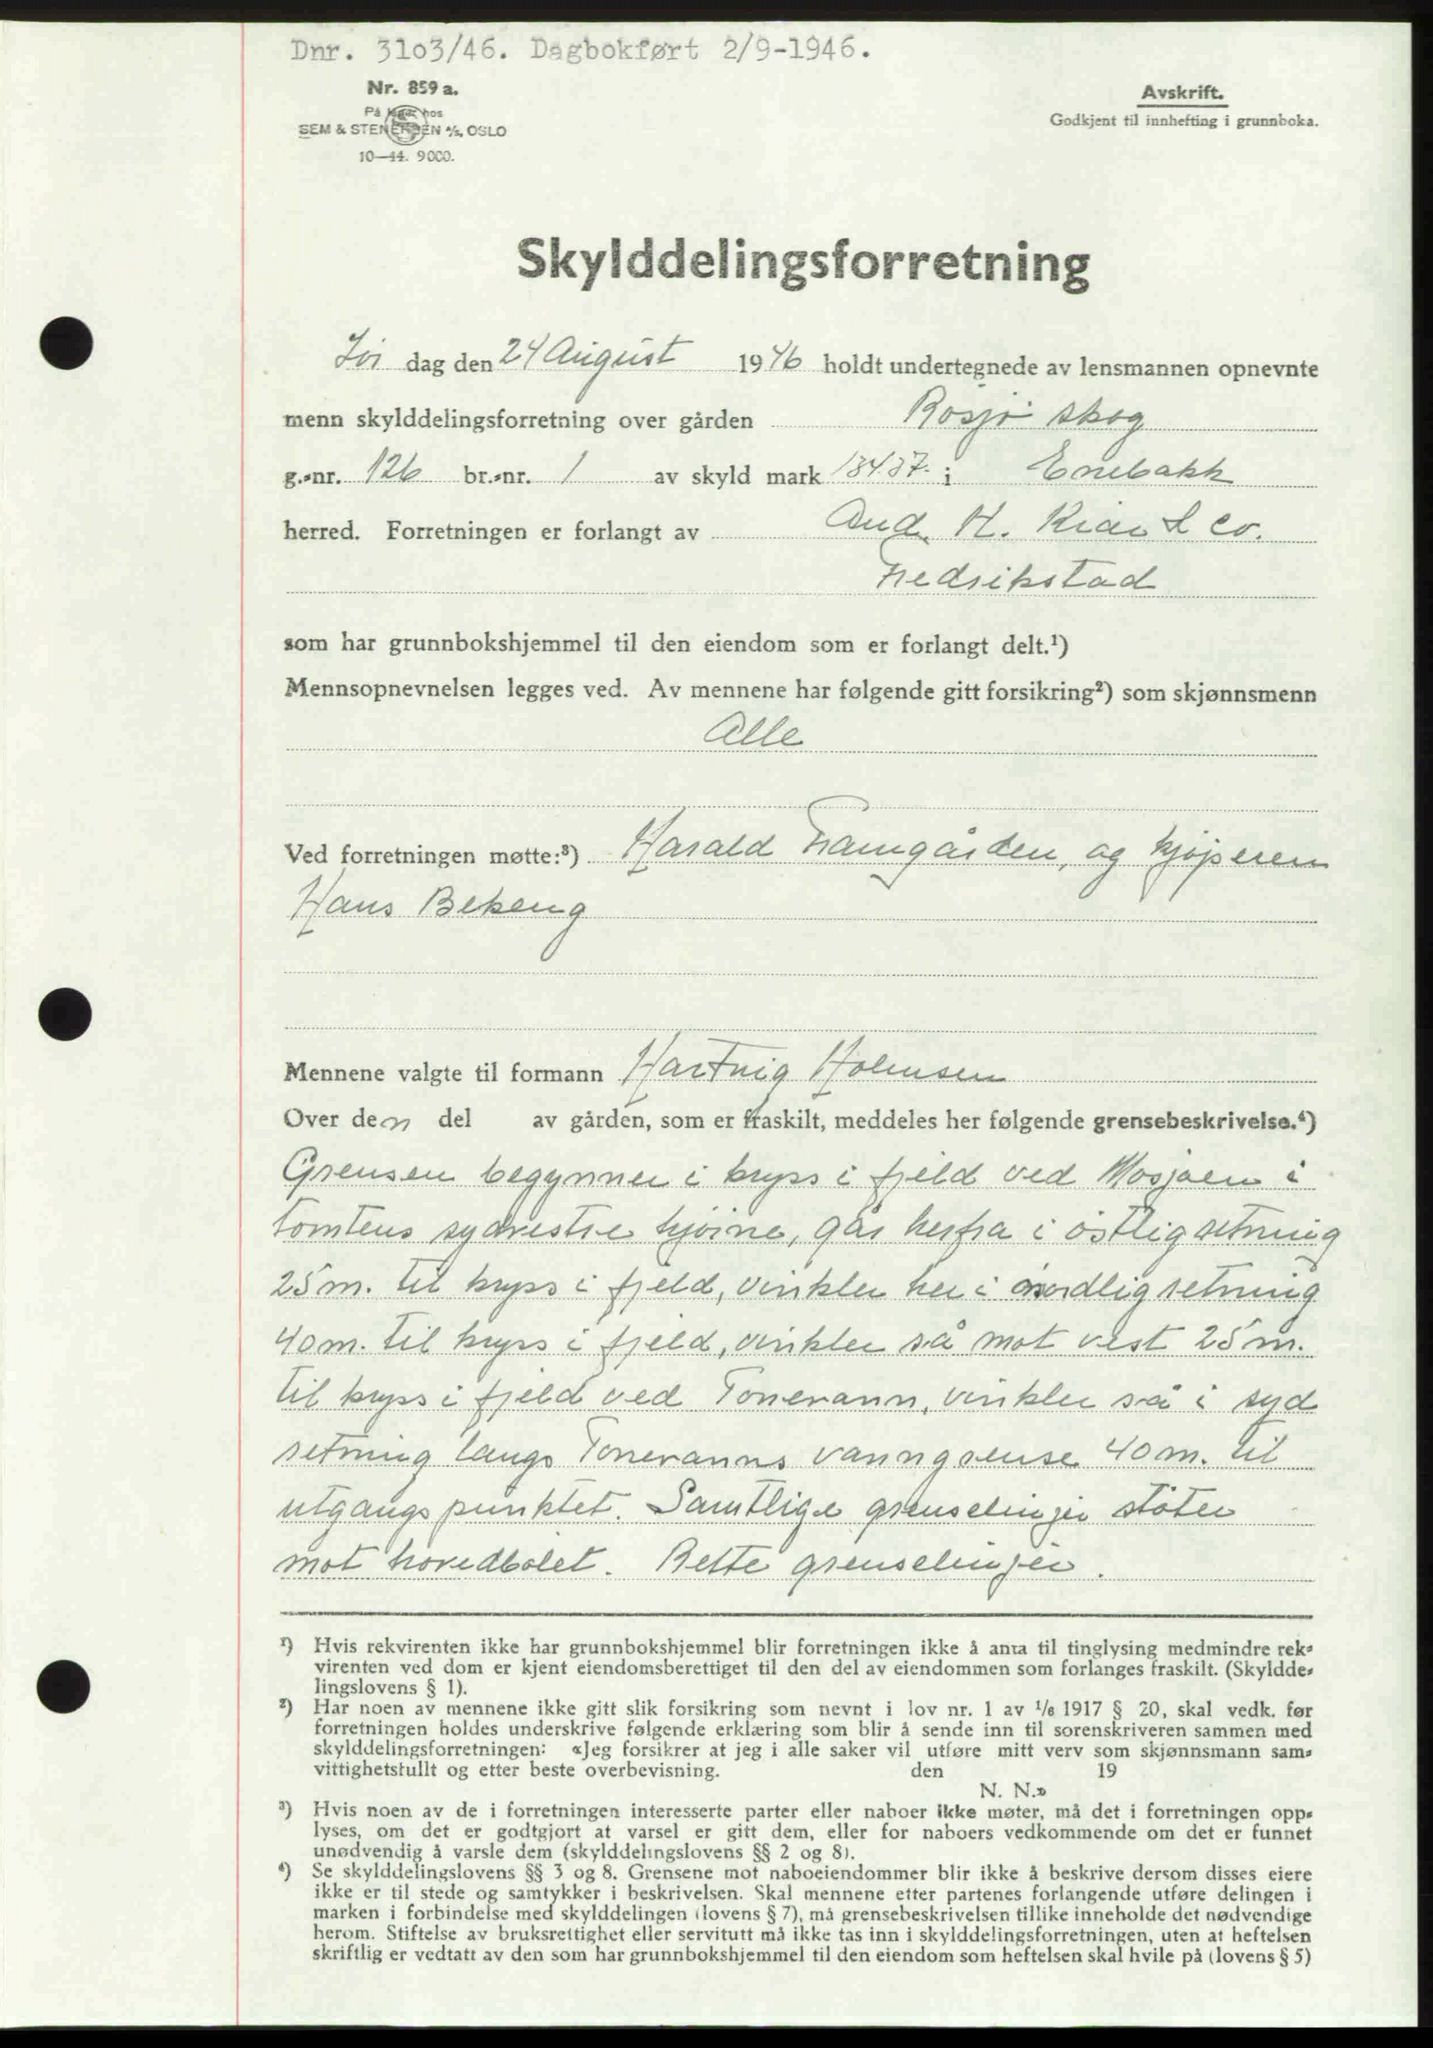 Dnr. 3103/46. Dagbokført 2/9-1946.
Nr. 859 a.
På lager hos
SEM & STENERSEN A/S, OSLO
10—44. 9000.
Avskrift.
Godkjent til innhefting i grunnboka.
Skylddelingsforretning
Lør dag den 24 August 1946 holdt undertegnede av lensmannen opnevnte
menn skylddelingsforretning over gården Rosjø skog
g.-nr. 126 br.-nr. 1 av skyld mark 134.37. i Enebakk
herred. Forretningen er forlangt av And. H. Kiær & Co.
Fredrikstad
som har grunnbokshjemmel til den eiendom som er forlangt delt.¹)
Mennsopnevnelsen legges ved. Av mennene har følgende gitt forsikring²) som skjønnsmenn
Alle
Ved forretningen møtte:³) Harald Framgården, og kjøperen
Hans Bekeng
Mennene valgte til formann Hartvig Holmsen
Over den del av gården, som er fraskilt, meddeles her følgende grensebeskrivelse.⁴)
Grensen begynner i kryss i fjeld ved Mosjøen i
tomtens sydvestre hjørne, går herfra i østlig retning
25 m. til kryss i fjeld, vinkler her i nordlig retning
40 m. til kryss i fjeld, vinkler så mot vest 25 m.
til kryss i fjeld ved Tonevann, vinkler så i syd
retning langs Tonevanns vanngrense 40 m. til
utgangspunktet. Samtlige grenselinjer støter
mot hovedbølet. Rette grenselinjer.
¹) Hvis rekvirenten ikke har grunnbokshjemmel blir forretningen ikke å anta til tinglysing medmindre rek-
virenten ved dom er kjent eiendomsberettiget til den del av eiendommen som forlanges fraskilt. (Skyldde-
lingslovens § 1).
²) Har noen av mennene ikke gitt slik forsikring som nevnt i lov nr. 1 av 1/6 1917 § 20, skal vedk. før
forretningen holdes underskrive følgende erklæring som blir å sende inn til sorenskriveren sammen med
skylddelingsforretningen: «Jeg forsikrer at jeg i alle saker vil utføre mitt verv som skjønnsmann sam-
vittighetsfullt og etter beste overbevisning. den 19
N. N.»
³) Hvis noen av de i forretningen interesserte parter eller naboer ikke møter, må det i forretningen opp-
lyses, om det er godtgjort at varsel er gitt dem, eller for naboers vedkommende om det er funnet
unødvendig å varsle dem (skylddelingslovens §§ 2 og 8).
⁴) Se skylddelingslovens §§ 3 og 8. Grensene mot naboeiendommer blir ikke å beskrive dersom disses eiere
ikke er til stede og samtykker i beskrivelsen. Skal mennene etter partenes forlangende utføre delingen i
marken i forbindelse med skylddelingen (lovens § 7), må grensebeskrivelsen tillike inneholde det nødvendige
herom. Stiftelse av bruksrettighet eller servitutt må ikke tas inn i skylddelingsforretningen, uten at heftelsen
skriftlig er vedtatt av den som har grunnbokshjemmel til den eiendom som heftelsen skal hvile på (lovens § 5)